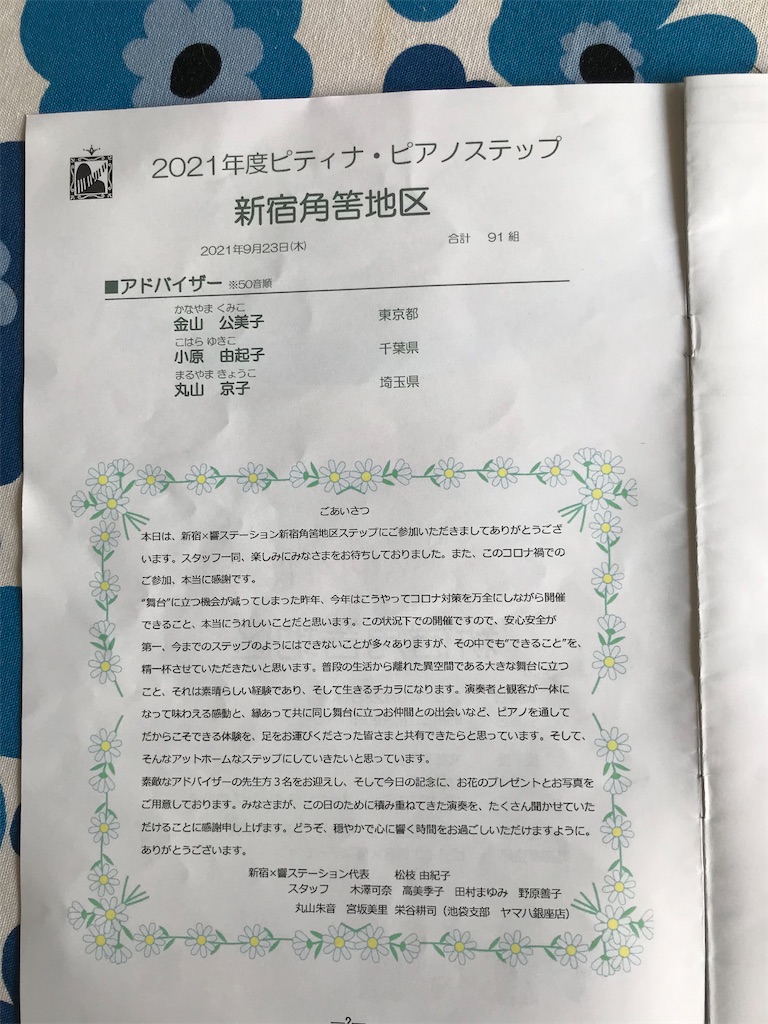 2021年度ピティナ・ピアノステップ
新宿角筈地区
2021年9月23日(木)
合計 91 組
■アドバイザー ※50音順
かなやま くみこ
金山 公美子 東京都
こはら ゆきこ
小原 由起子 千葉県
まるやま きょうこ
丸山 京子 埼玉県
ごあいさつ
本日は、新宿×響ステーション新宿角筈地区ステップにご参加いただきましてありがとうござ
います。スタッフ一同、楽しみにみなさまをお待ちしておりました。また、このコロナ禍での
ご参加、本当に感謝です。
“舞台”に立つ機会が減ってしまった昨年、今年はこうやってコロナ対策を万全にしながら開催
できること、本当にうれしいことだと思います。この状況下での開催ですので、安心安全が
第一、今までのステップのようにはできないことが多々ありますが、その中でも“できること”を、
精一杯させていただきたいと思います。普段の生活から離れた異空間である大きな舞台に立つ
こと、それは素晴らしい経験であり、そして生きるチカラになります。演奏者と観客が一体に
なって味わえる感動と、縁あって共に同じ舞台に立つお仲間との出会いなど、ピアノを通して
だからこそできる体験を、足をお運びくださった皆さまと共有できたらと思っています。そして、
そんなアットホームなステップにしていきたいと思っています。
素敵なアドバイザーの先生方3名をお迎えし、そして今日の記念に、お花のプレゼントとお写真を
ご用意しております。みなさまが、この日のために積み重ねてきた演奏を、たくさん聞かせていた
だけることに感謝申し上げます。どうぞ、穏やかで心に響く時間をお過ごしいただけますように。
ありがとうございます。
新宿×響ステーション代表 松枝 由紀子
スタッフ 木澤可奈 高美季子 田村まゆみ 野原善子
丸山朱音 宮坂美里 栄谷耕司（池袋支部 ヤマハ銀座店）
—2—